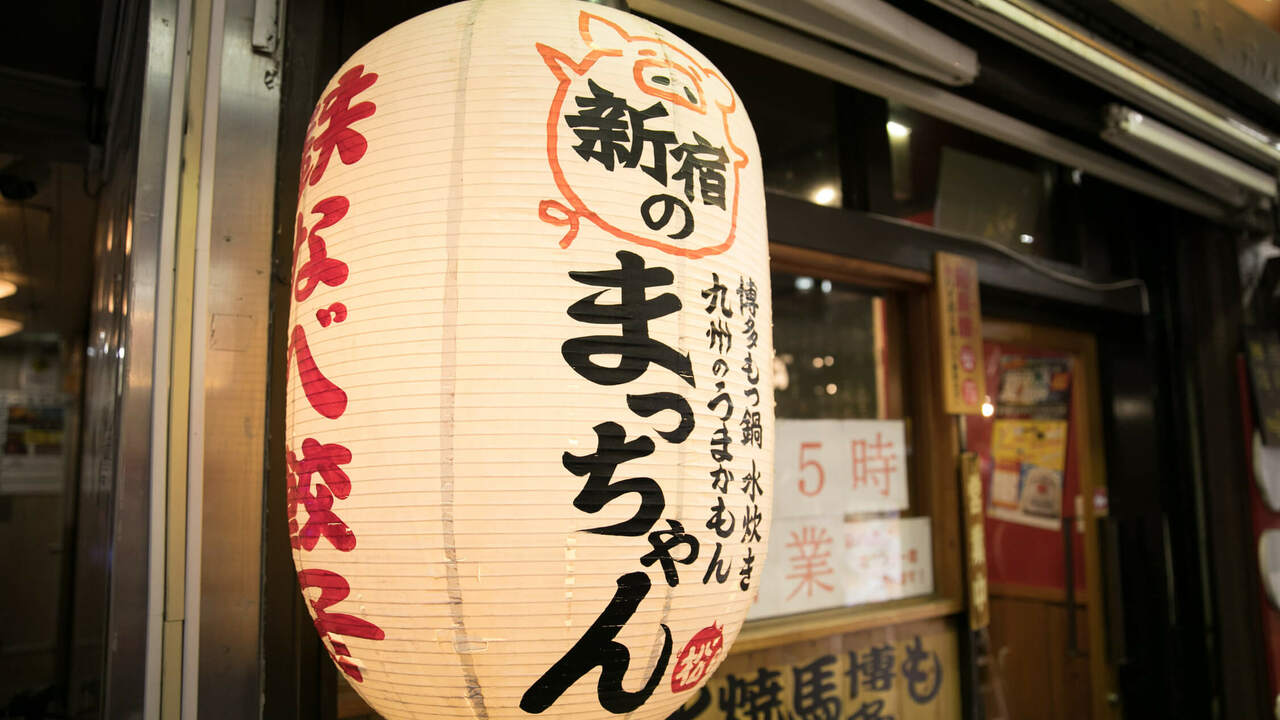 新宿の
まっちゃん
博多もつ鍋 水炊き
九州のうまかもん
鉄なべ餃子
松
5時
業
焼
馬
博多
も